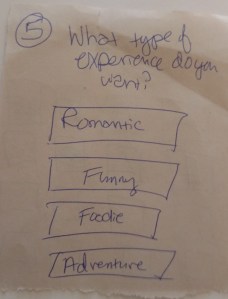 5
What type of
experience do you
want?
Romantic
Funny
Foodie
Adventure